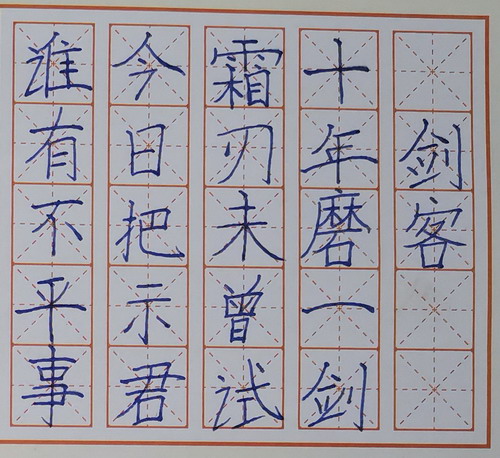 剑客
十年磨一剑
霜刃未曾试
今日把示君
谁有不平事